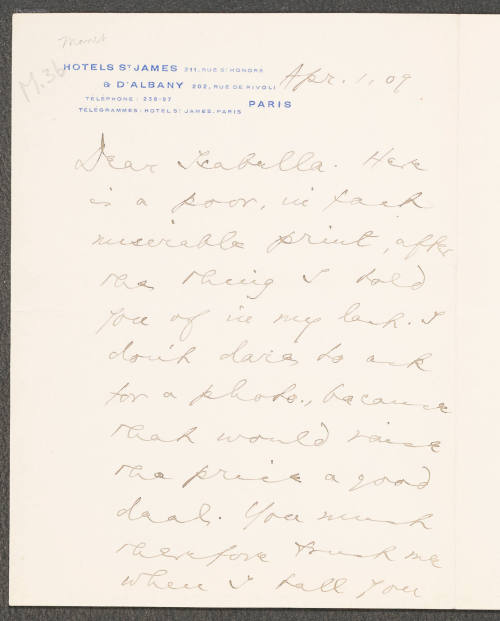 Manet
M.36
HOTELS ST JAMES 211, RUE ST HONORÉ
& D'ALBANY 202, RUE DE RIVOLI
TÉLÉPHONE: 238-97 PARIS
TÉLÉGRAMMES: HOTEL ST JAMES. PARIS
Apr. 1, 09
Dear Isabella. Here
is a poor, in fact
miserable print, after
the thing I told
you of in my last. I
don't dare to ask
for a photo., because
that would raise
the price a good
deal. You must
therefore trust me
when I tell you